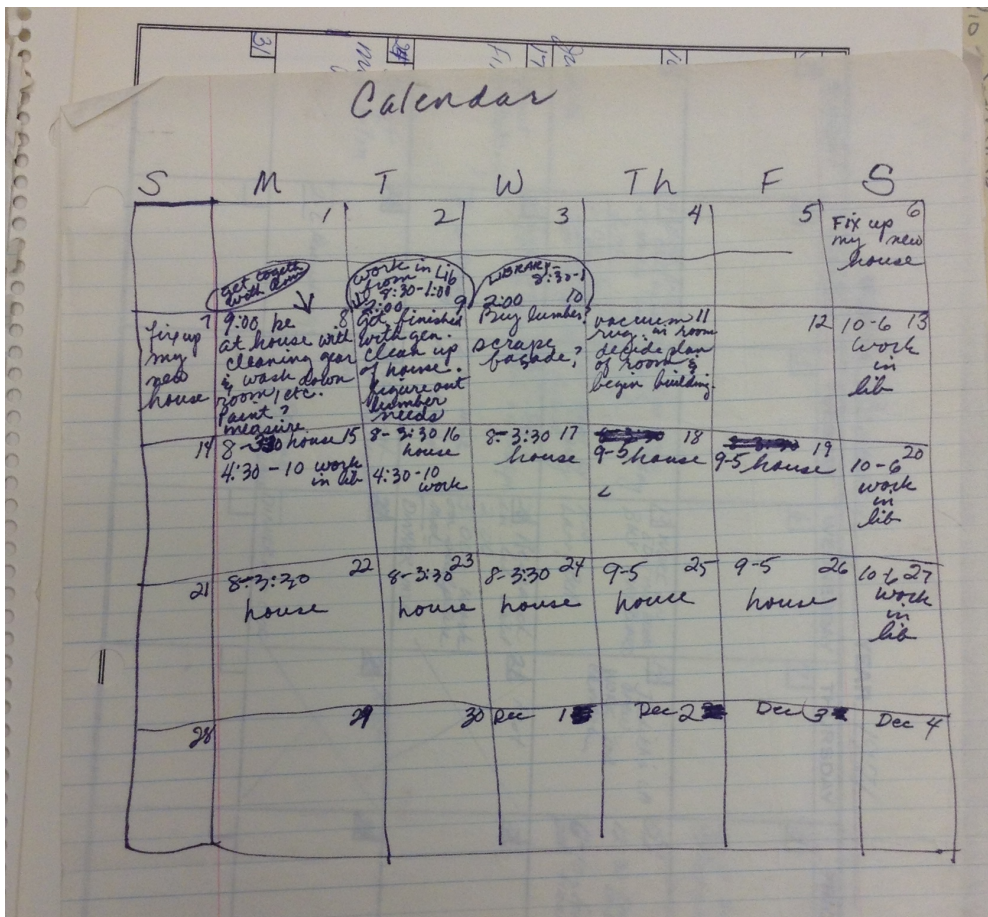 Calendar
S M T W Th F S
1 2 3 4 5 6
Fix up
my new
house
7
fix up
my
new
house
get togeth
with
8
9:00 be
at house with
cleaning gear
& wash down
room, etc.
Paint?
measure
work in Lib
from
8:30-1:00
9
2:00
Get finished
with gen.
clean up
of house.
figure out
lumber
needs
LIBRARY-
8:30-1
10
2:00
Buy lumber?
scrape
façade?
11
vaccuem
rug. in room
decide plan
of room &
begin building.
12
13
10-6
work
in
lib
14
15
8-3:30 house
4:30-10 work
in lib
16
8-3:30
house
4:30-10
work
17
8-3:30
house
18
9-5 house
19
9-5 house
20
10-6
work
in
lib
21
22
8-3:30
house
23
8-3:30
house
24
8-3:30
house
25
9-5
house
26
9-5
house
27
10-6
work
in
lib
28 29 30 Dec 1 Dec 2 Dec 3 Dec 4
31
17